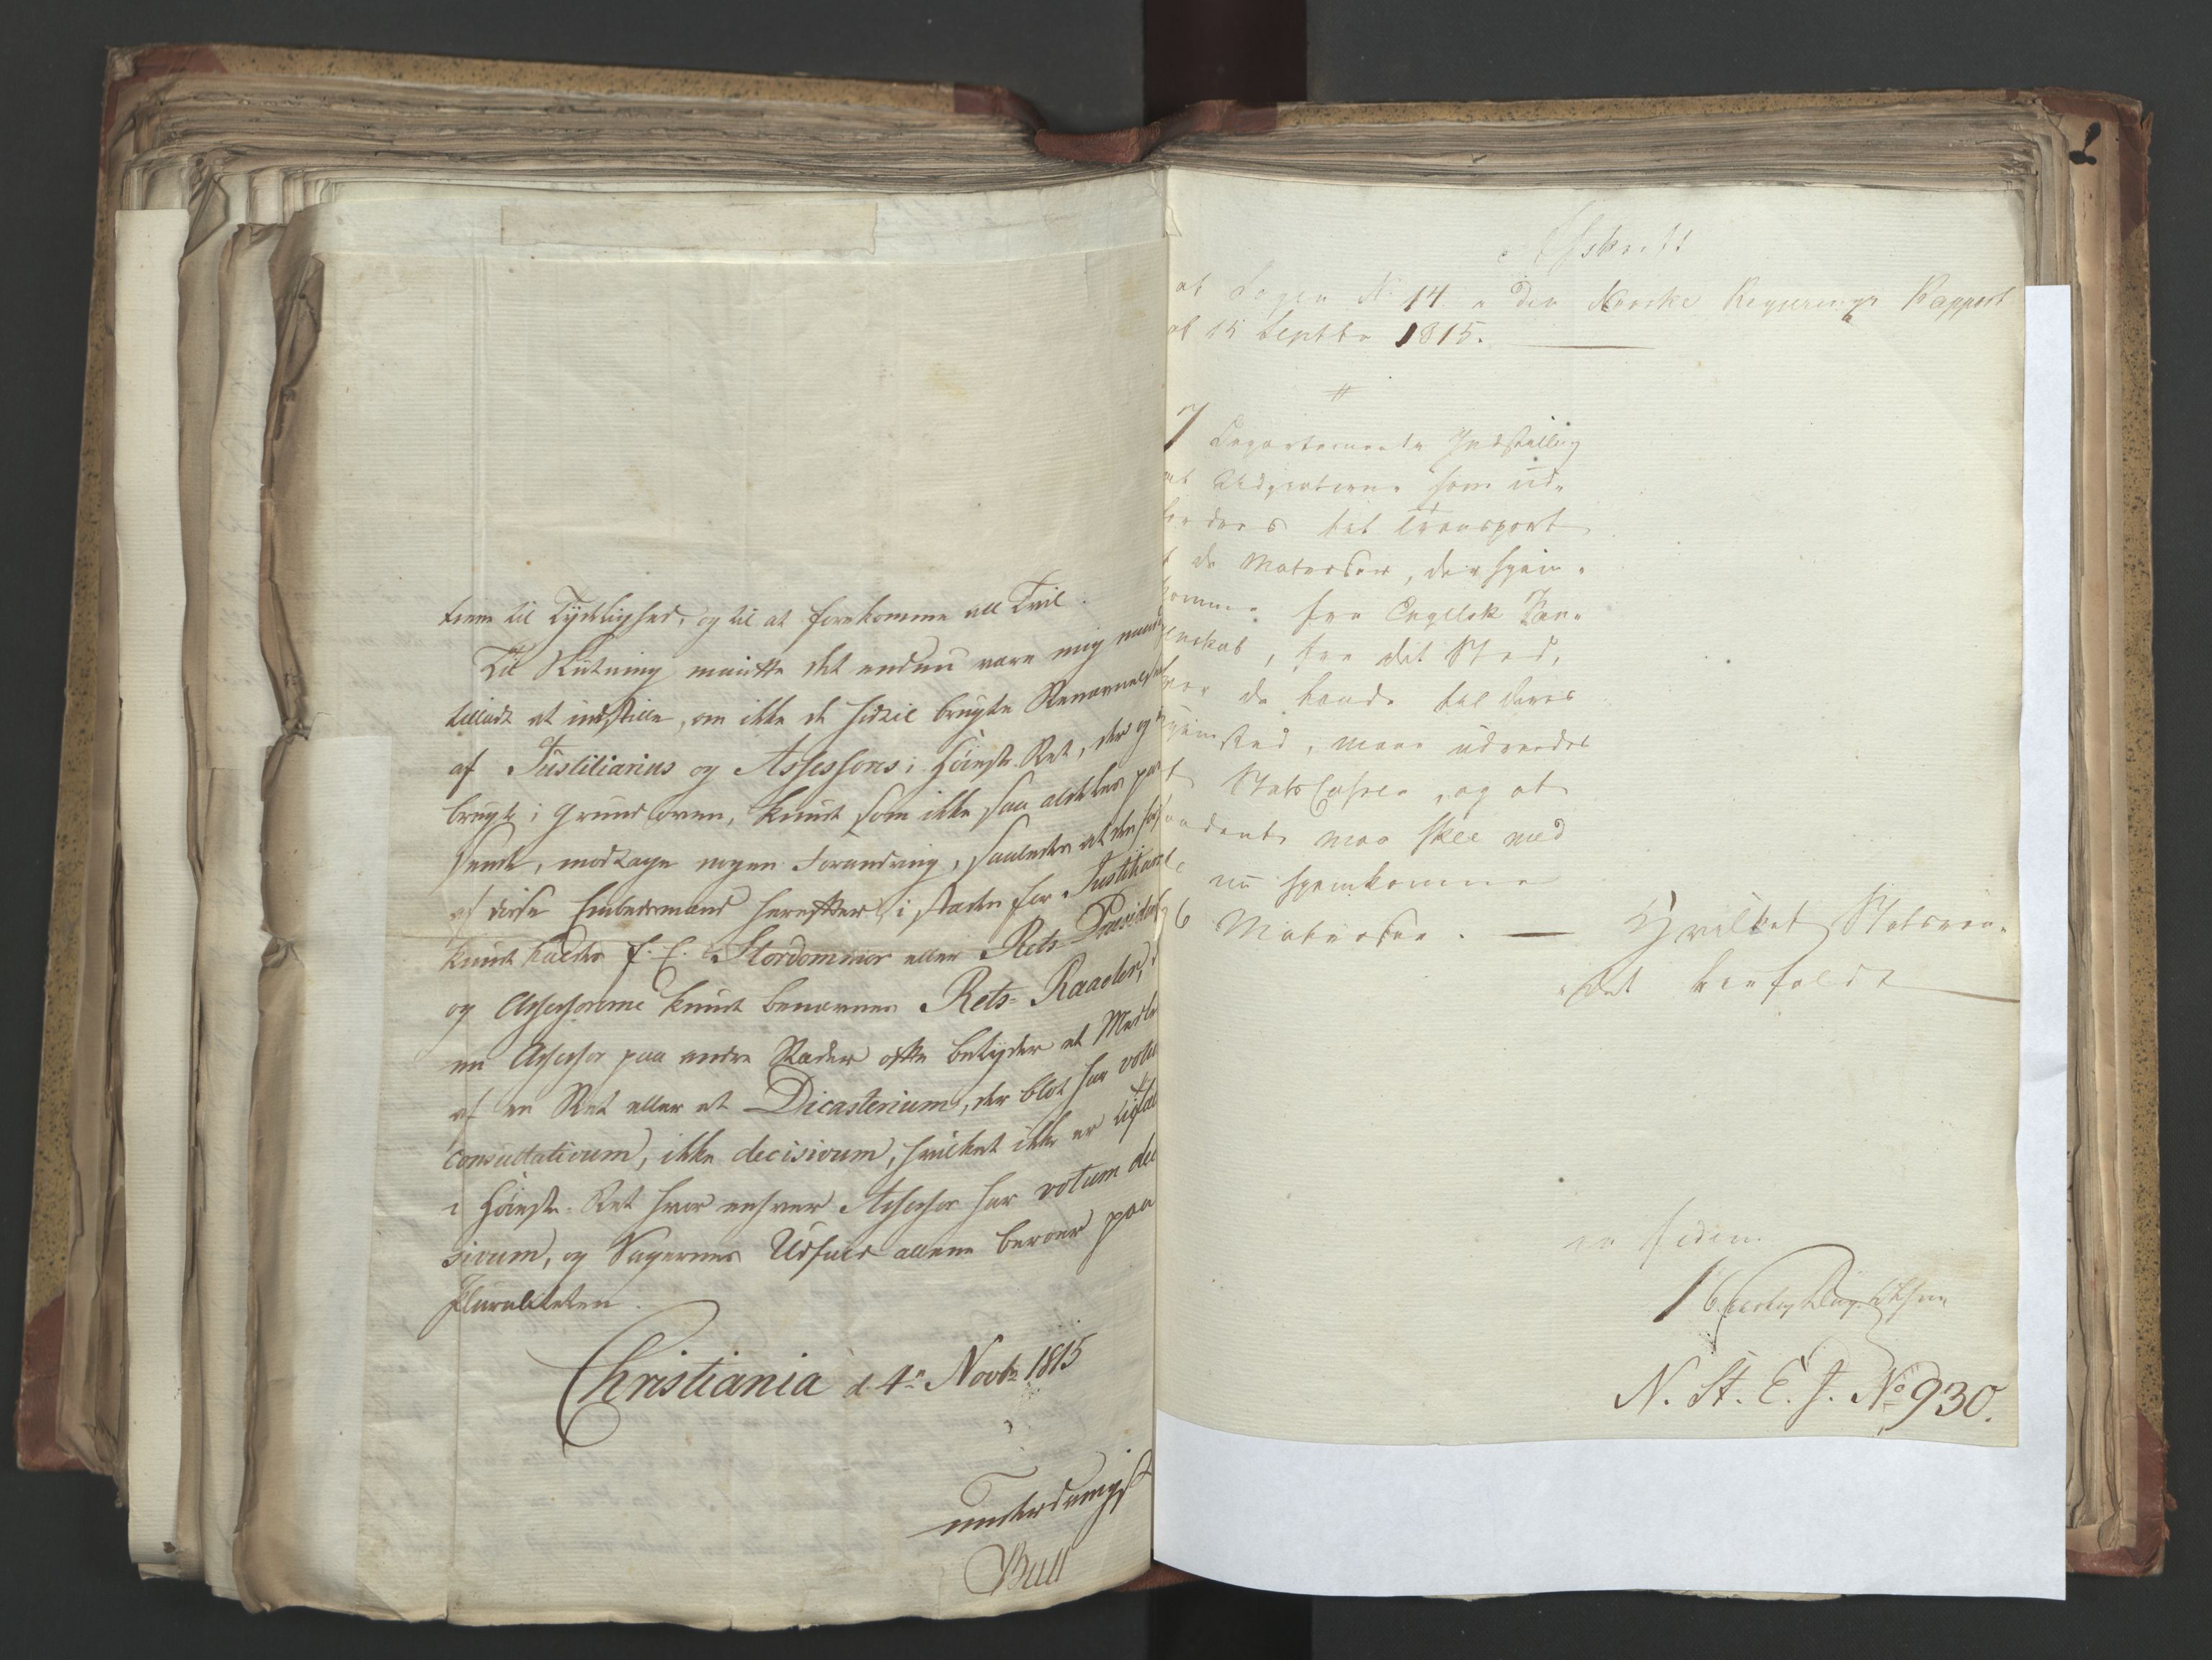 til Tydelighed, og til at forekomme all Tvil.
Til Slutning maatte det endnu være mig
tilladt at indstille, om ikke de hidtil brugte Benævnelser
af Justitiarius og Assessores i Høieste-Ret, der og
brugt i Grundloven, kunde som ikke saa aldeles
modtage nogen Forandring, saaledes at den
af disse Embedsmænd herefter i stæden for Justitiari
kunde kaldes f. E. Stordommer eller Rets-President
og Assessorerne kunde benævnes Rets-Raader,
en Assessor paa andre Stæder ofte betyder et Medle
af en Ret eller et Dicasterium, der blot har votum
consultativum, ikke decisivum, hvilket ikke er
i Høieste-Ret hvor enhver Assessor har votum deci
sivum, og Sagernes Udfald allene beroer paa
Pluraliteten.
Christiania d. 4de Novbr 1815
underdanigst
Bull
Afskrift
af Sagen No 14 i den Norske Regjerings Rapport
af 15 Septbr 1815.
Departements Indstilling
at Udgifterne som ud-
fordres til Transport
de Matroser, der hjem-
komme fra Engelsk Fan-
enskab, fra det Sted,
hvor de lande til deres
Hjemsted, maae udredes
Stats Cassen, og at
maa skee med
nu hjemkomne
6 Matroser. — Hvilket Statsraa-
det henfaldt
N. St. E. J. No 930.